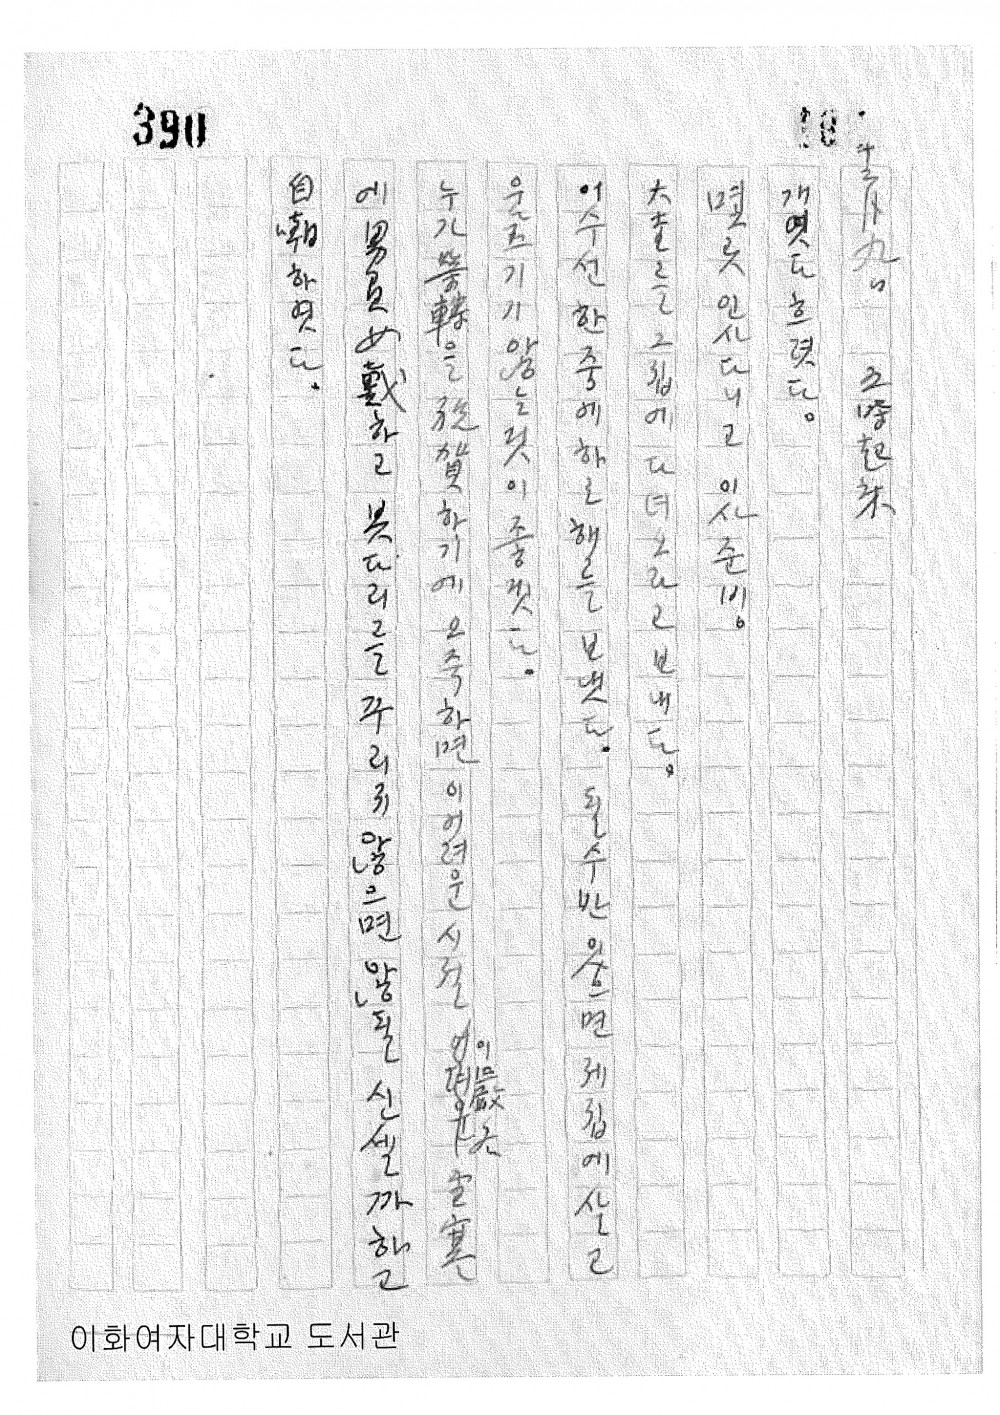 390
十二月九日 五時起床
개엿다 흐렷다。
몃곳 인사 다니고 잇사 준비。
大奎를 그 집에 다녀오라고 보내다。
어수선한 중에 하로 해를 보냇다。 될 수 반 잇으면 제 집에 살고
움즈기기 않는 것이 좋겟다。
누가 을 하기에 오죽하면 이 어려운 시절 이 嚴冬 寒
에 男負女戴하고 봇다리를 꾸리지 않으면 않될 신셀까 하고
自嘲하엿다。
이화여자대학교 도서관